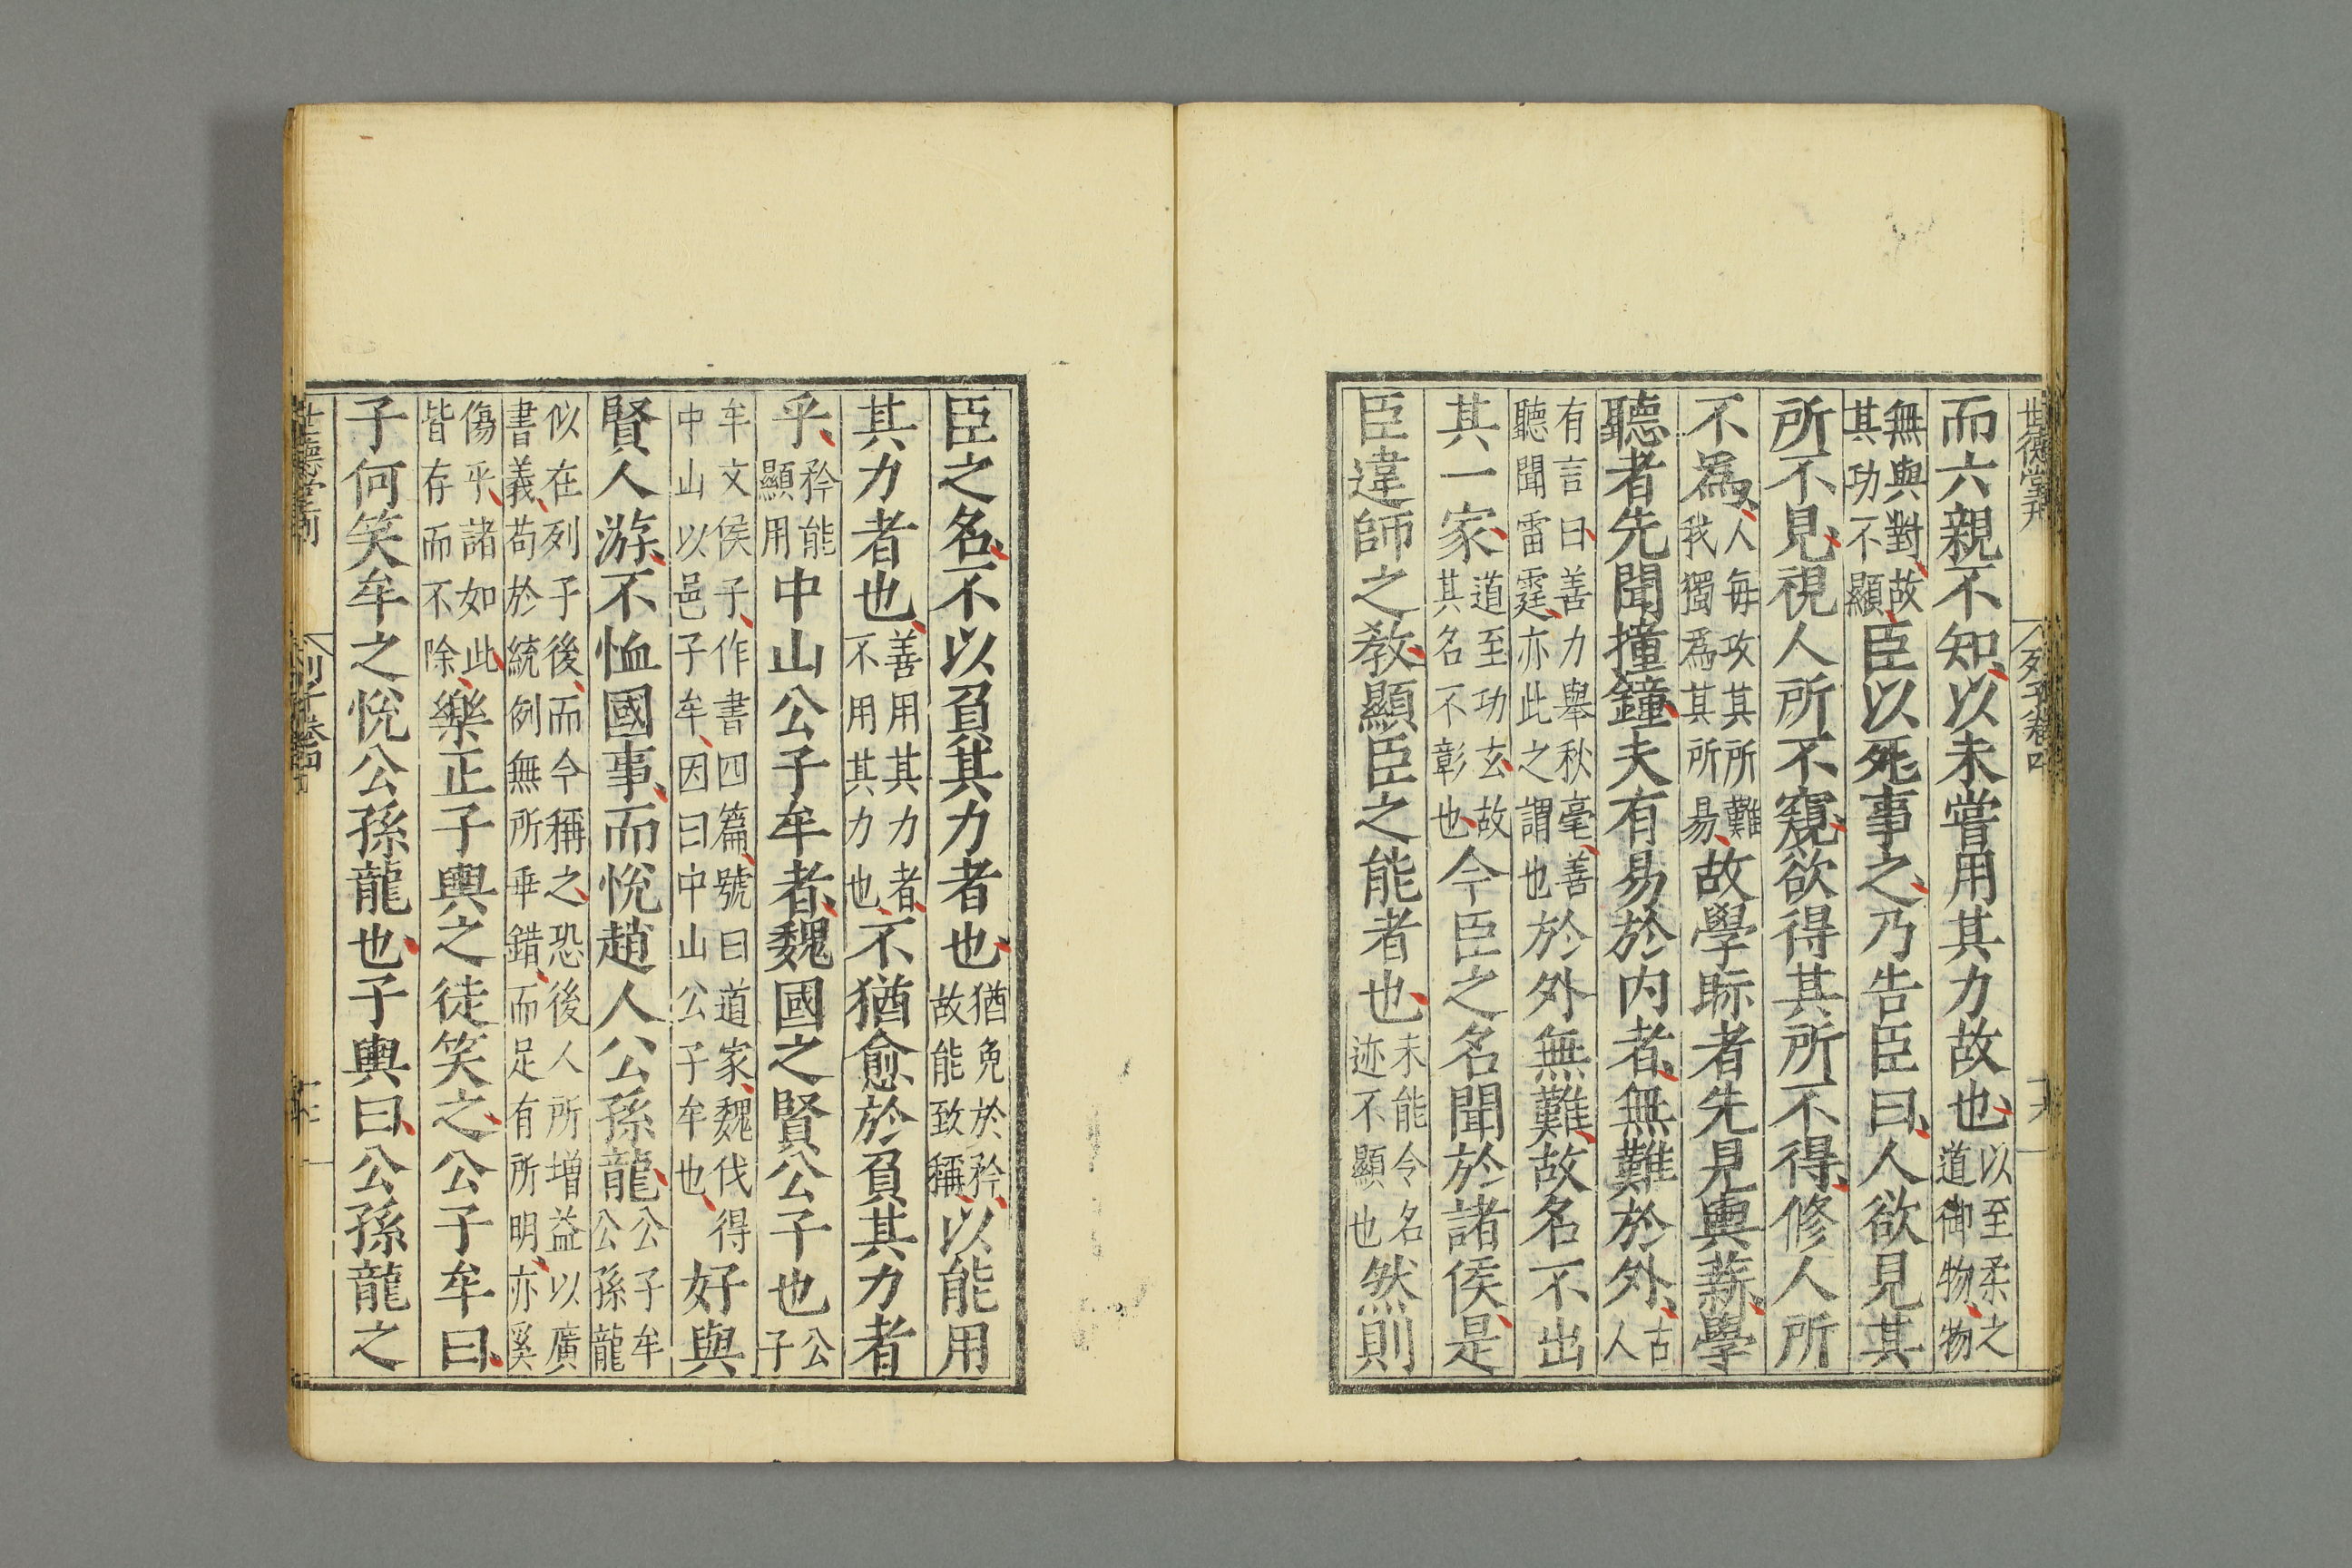 世德堂刊
列子卷四
而六親不知以未嘗用其力故也以至柔之道御物物
無與對故其功不顯臣以死事之乃告臣曰人欲見其
所不見視人所不窺欲得其所不得修人所
不爲人每攻其所難我獨爲其所易故學眎者先見輿薪學
聽者先聞撞鐘夫有易於内者無難於外古人
有言曰善力舉秋毫善聽聞雷霆亦此之謂也於外無難故名不出
其一家道至功玄故其名不彰也今臣之名聞於諸侯是
臣違師之教顯臣之能者也未能令名迹不顯也然則
臣之名不以負其力者也猶免於矜故能致稱以能用
其力者也善用其力者不用其力也不猶愈於負其力者
乎矜能顯用中山公子牟者魏國之賢公子也公子
牟文侯子作書四篇號曰道家魏伐得中山以邑子牟因曰中山公子牟也好與
賢人游不恤國事而悅趙人公孫龍公子牟公孫龍
似在列子後而今稱之恐後人所增益以廣書義苟於統例無所乖錯而足有所明亦奚
傷乎諸如此皆存而不除樂正子輿之徒笑之公子牟曰
子何笑牟之悅公孫龍也子輿曰公孫龍之
世德堂刊
列子卷四